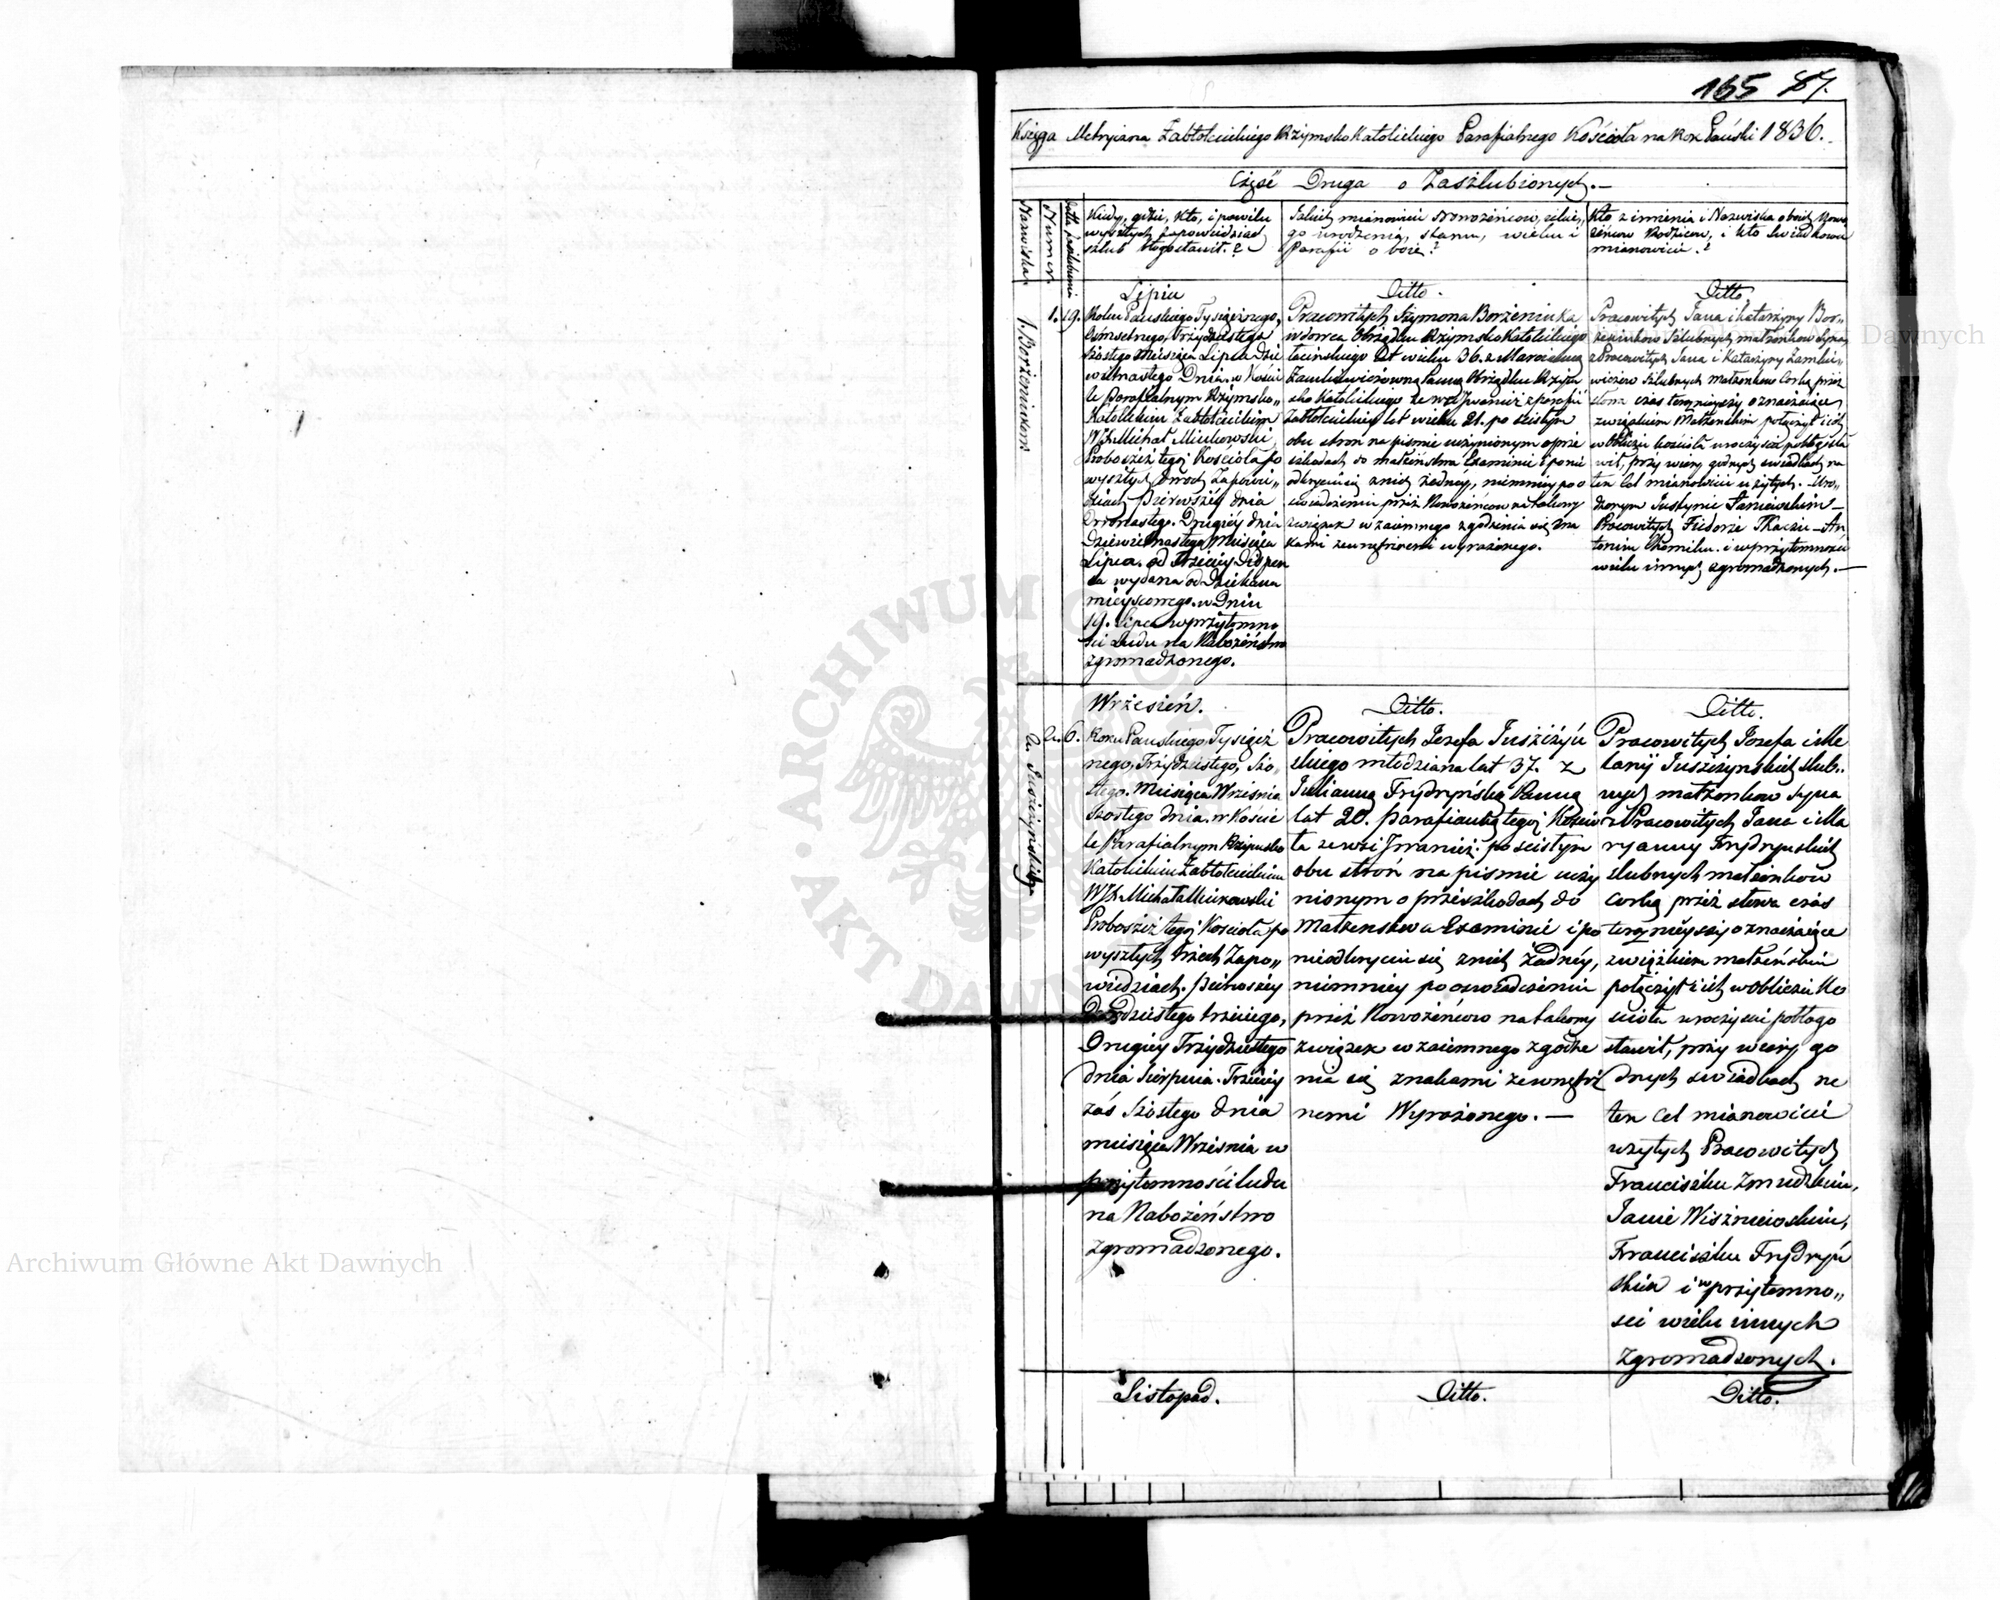 165 87.
Księga Metryczna Zabłotcickiego Rzymsko Katolickiego Parafialnego Kościoła na Rok Pański 1836.
Część Druga o Zaszlubionych.—
Nazwiska
Numer
Kiedy, gdzie, kto, i po wielu
wyszłych zapowiedziach
szlub błogosławił.?
Jakich mianowicie Nowożeńcow, jakie,
go urodzenia, stanu, wieku i
Parafii oboie?
Kto z imienia i Nazwiska oboich Nowo
żeńcow Rodzicow, i kto Swiadkowie
mianowicie.?
1. Borzeninkow
1. 19.
Lipiec
Roku Pańskiego Tysiącznego,
Osmsetnego, Trzydziestego
Szostego Miesiąca Lipca Dzie
wietnastego Dnia. w Kości
le Parafialnym Rzymsko„
Katolickim Zabłotcickim
WJX Michał Mickowski,
Proboszcz tegoż Kościoła po
wyszłych dwóch Zapowie„
dziach, Pierwszey dnia
Dwonastego. Drugiéy dnia
Dziewietnastego Miesiąca
Lipca. od trzeciey Dispen
sa wydana od Dziekana
mieyscowego. w Dniu
19. Lipca w przytomno
ści Ludu na Nabożeństwo
zgromadzonego.
Ditto.
Pracowitych Szymona Borzeninka
wdowca Obrządku Rzymsko Katolickiego
Łacińskiego lat wieku 36. z Marcianną
Panną Obrządku Rzym
sko Katolickiego ze wsi Jwanicz z parafii
Zabłotcickiey lat wieku 21. po ścisłym
obu stron na pismie uczynionym o prze
szkodach do małżeństwa Examinie i ponie
odkryciu się z nich żadney, niemniey po o
swiadczeniu przez Nowożeńcow na takowy
zwiąsek wzaiemnego zgodzenia się zna
kami zewnętrznemi wyrażonego.
Ditto
Pracowitych Jana i Katarzyny Bor„
zeninkow szlubnych małżonkow syna,
z Pracowitych Jana i Katarzyny
szlubnych Małżonkow Corką przez
słowa czas teraznieyszy oznaczaiące,
związkiem Małżenskim połączył i ich
w obliczu kościoła uroczyscie pobłogosła
wił, przy wiary godnych swiadkach na
ten Cel mianowicie użytych. Uro„
dzonym Justynie Janiowskim—
Pracowitych Fiedorze Tkaczu—An
tonim Chomiku. i w przytomności
wielu innych zgromadzonych.—
2. Juszczyńskiego
2. 6.
Wrzesień.
Roku Pańskiego Tysiącz
nego, Trzydziestego, Szo„
stego. Miesiąca Września
Szostego dnia. w Koście
le Parafialnym Rzymsko
Katolickim Zabłotcickim
WJX Michał Mickowski
Proboszcz tegoż Kościoła po
wyszłych trzech Zapo„
wiedziach. pierwszey
Dwódziestego trzeciego,
Drugiey Trzydziestego
dnia Sierpnia. Trzeciey
zaś Szostego dnia
miesiąca Września w
przytomności ludu
na Nabożeństwo
zgromadzonego.
Ditto.
Pracowitych Jozefa Juszczyń
skiego młodziana lat 37. z
Julianną Frydryńską Panną
lat 20. parafianką tegoż Koscio
ła ze wsi Jwanicz. po scisłym
obu stron na pismie uczy
nionym o przeszkodach do
Małzenstwa Examinie i po
nieodkryciu się z nich żadnéy,
niemniey po oswiadczeniu
przez Nowożeńcow na takowy
związek wzaiemnego zgodze
nia się znakami zewnętrz
nemi Wyrażonego.—
Ditto.
Pracowitych Jozefa i Me
lanij Juszczynskich slub„
nych małżonkow syna
z Pracowitych Jana i Ma
ryanny Frydrynskich
slubnych małżonkow
Corką przez słowa czas
teraznieyszy oznaczaiące
związkiem małżeństwa
połączył i ich w obliczu Ko
ścioła uroczyscie pobłogo
sławił, przy wiary go
dnych swiadkach na
ten Cel mianowicie
użytych Pracowitych
Franciszku Zmudzkim,
Janie Wiszniowskim,
Franciszku Frydryń
skim i w przytomno„
sci wielu innych
zgromadzonych.
Listopad.
Ditto.
Ditto.
ARCHIWUM GŁÓWNE AKT DAWNYCH
Archiwum Główne Akt Dawnych
Archiwum Główne Akt Dawnych